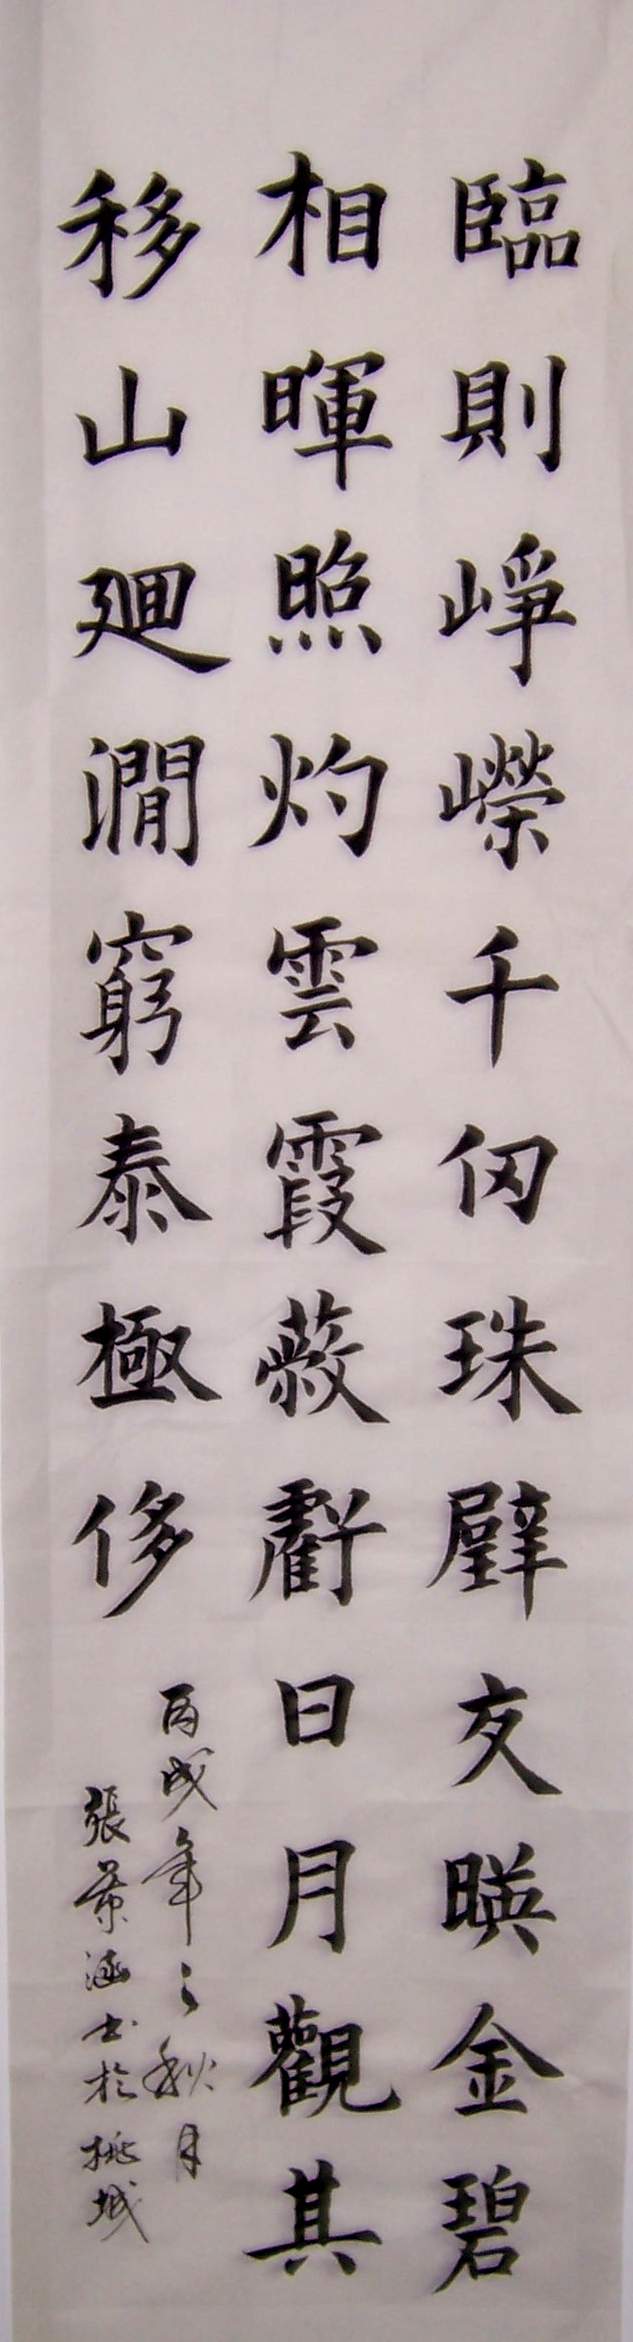 臨則崢嶸千仞珠壁交暎金碧
相暉照灼雲霞蔽虧日月觀其
移山迴澗窮泰極侈
丙戌年之秋月
張景涵书於桃城